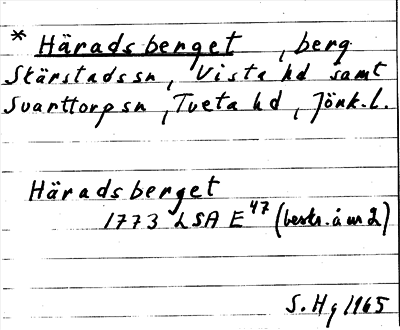 * Häradsberget, berg
Skärstads sn, Vista hd samt
Svarttorp sn, Tveta hd, Jönk. l.
Häradsberget
1773 LSA E 47 (beskr. å nr 2)
S. Hg 1965